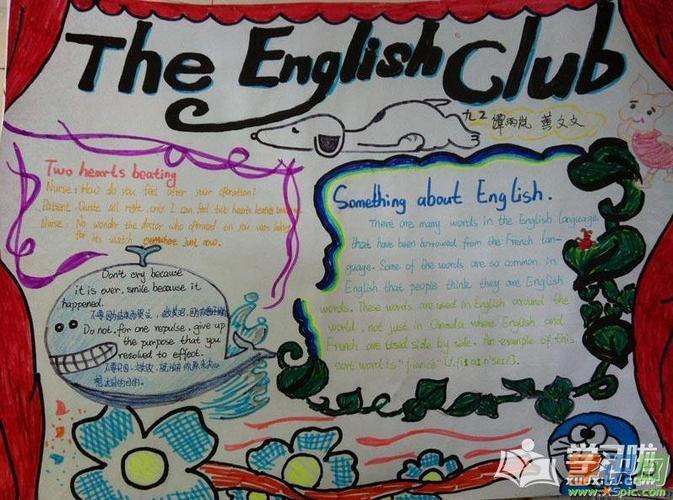 The English Club
九2 谭雨岚 黄文文
Two hearts beating
Nurse: How do you feel after your operation?
Patient: Quite all right, only I can feel two hearts beating
Nurse: No wonder the doctor who operated on you was looking
for his watch everywhere just now.
Don't cry because
it is over. smile because it
happened.
Do not, for one repulse, give up
the purpose that you
resolved to effect.
Something about English.
There are many words in the English language
that have been borrowed from the French lan-
guage. Some of the words are so common in
English that people think they are English
words. These words are used in English around the
world, not just in Canada where English and
French are used side by side. An example of this
sort word is "fiancé"
学习啦
xuexila.com
www.x5pic.com